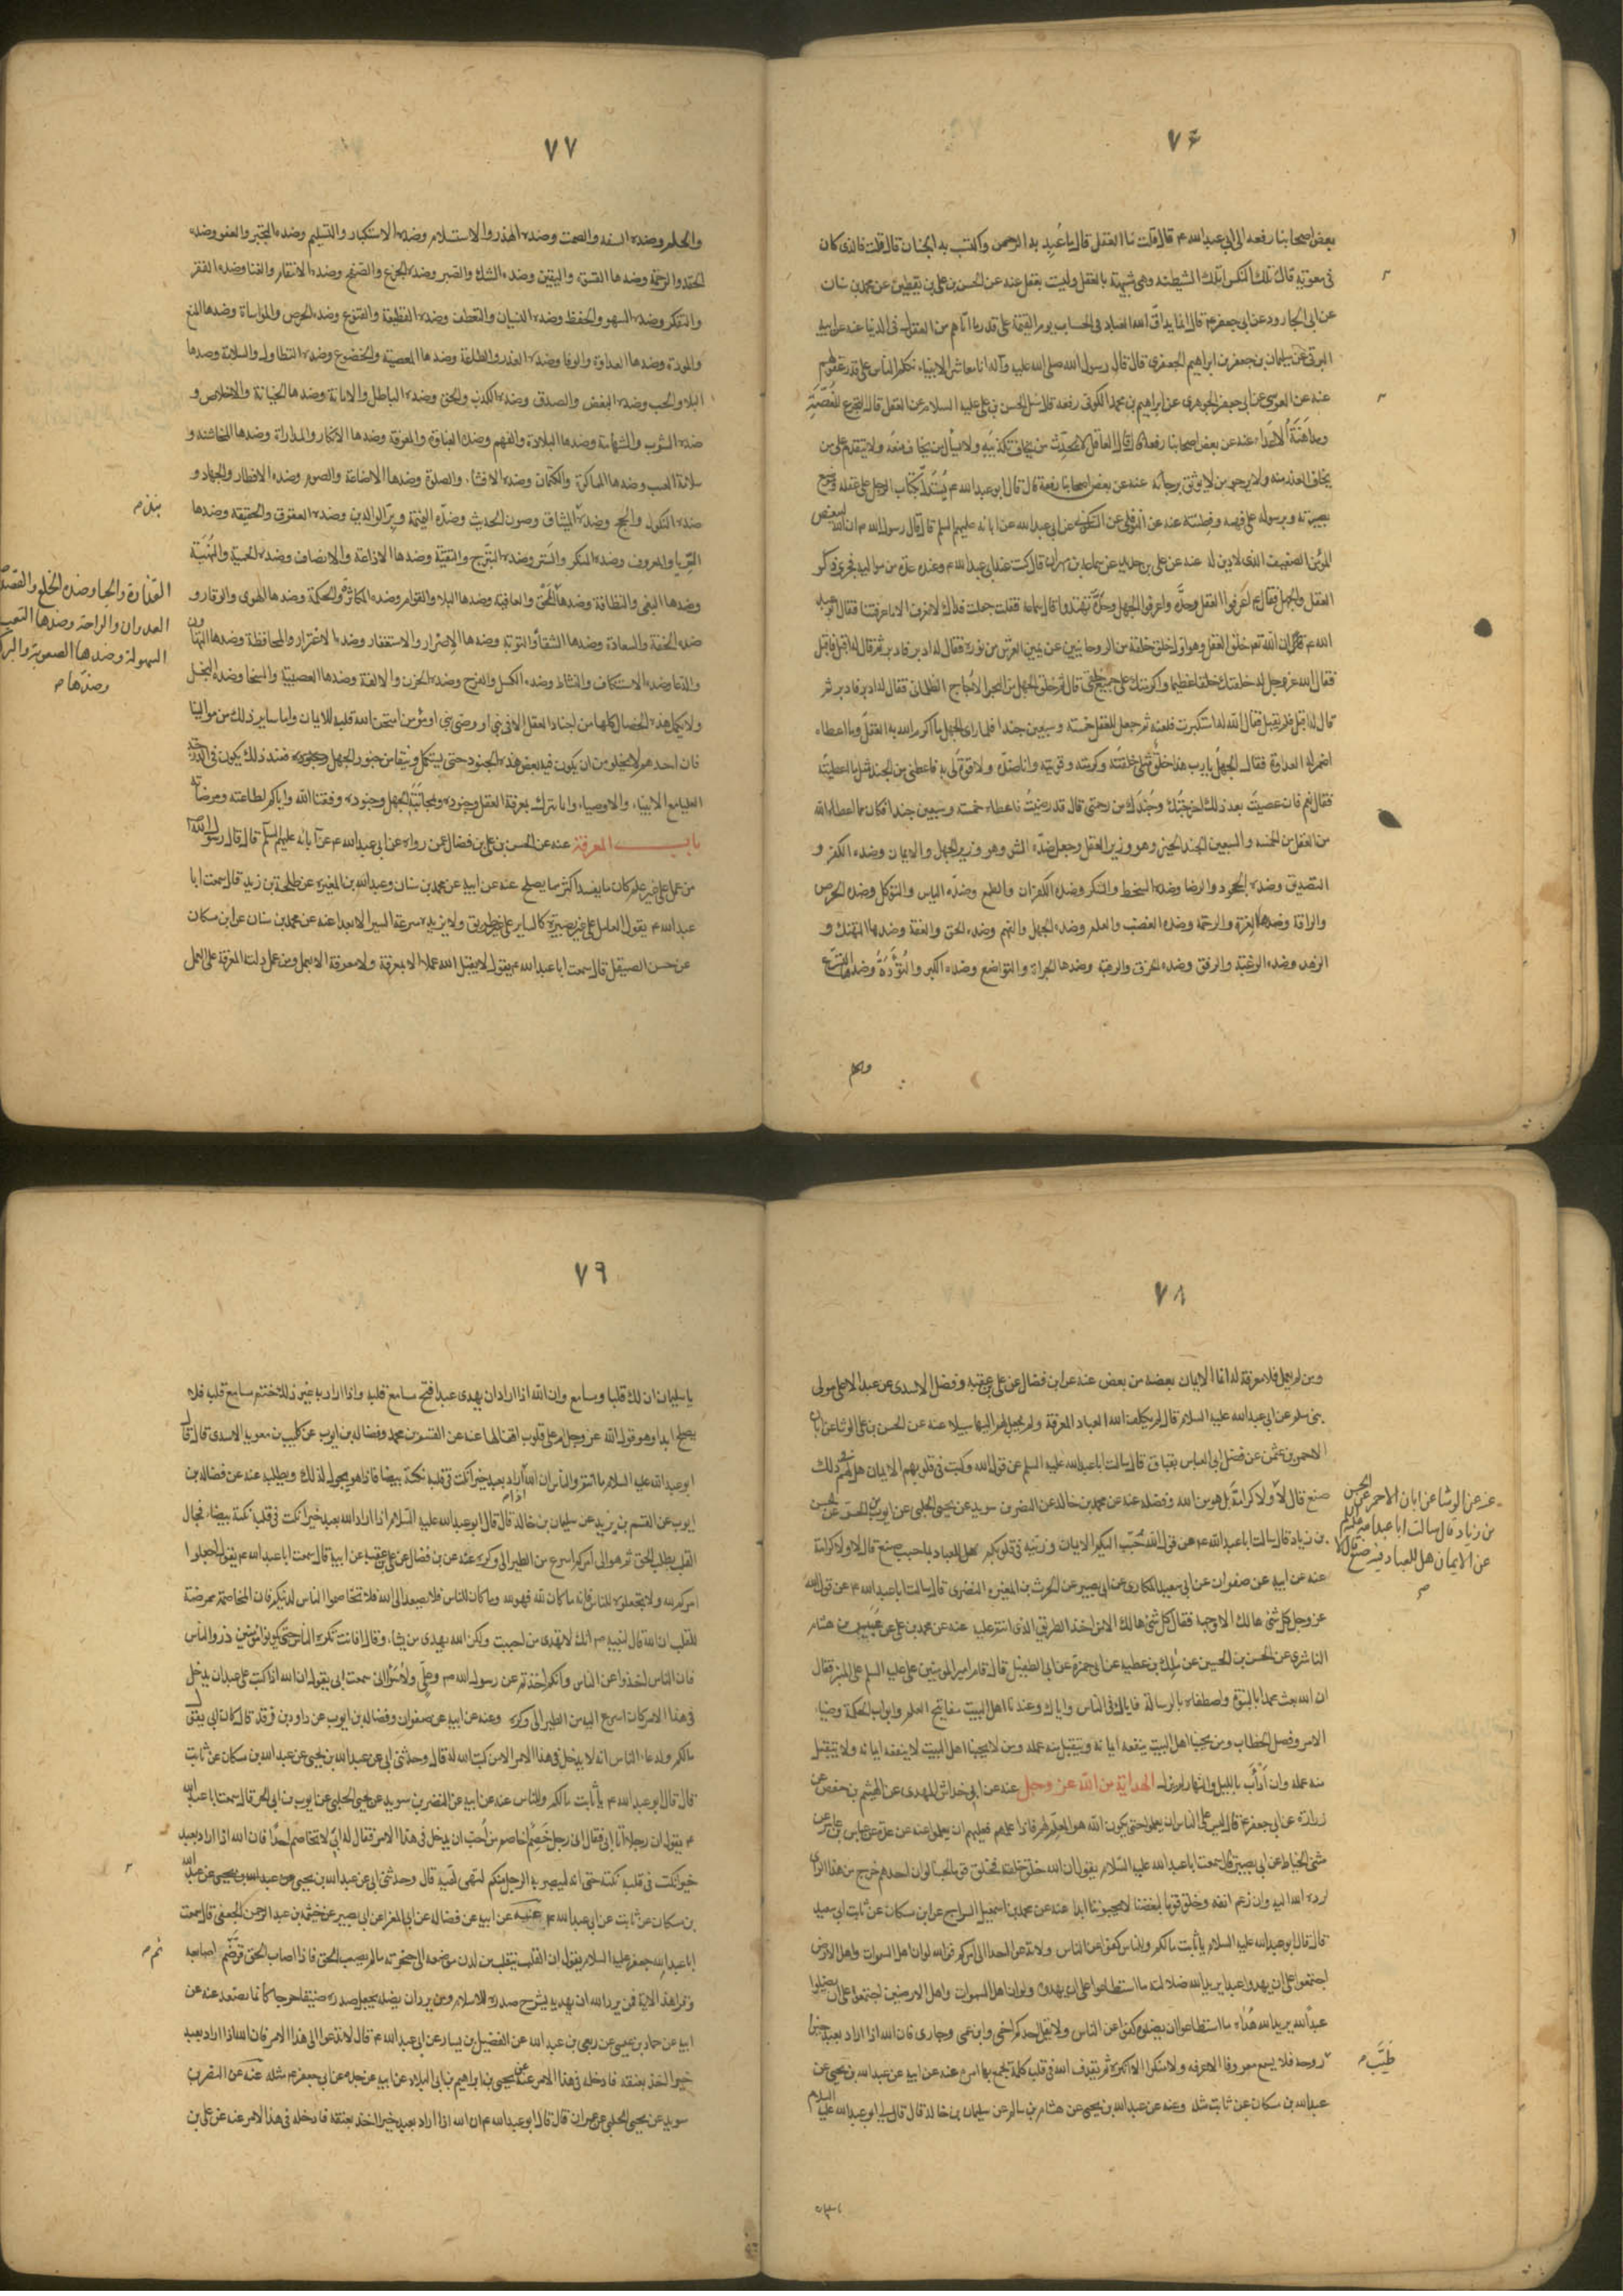 ٧٦
بعض اصحابنا رفعه الى ابى عبد الله ع قال قلت ما العقل قال ما عُبِد به الرحمن واكتسب به الجنان قال قلت فالذى كان
فى معوية قال تلك النكراء تلك الشيطنه وهى شبيهة بالعقل وليست بعقل عنه عن الحسن بن على بن يقطين عن محمد بن سنان
عن ابى الجارود عن ابى جعفر ع قال انما يداقّ الله العباد فى الحساب يوم القيمة على قدر ما اتاهم من العقول فى الدنيا عنه عن ابيه
البرقى عن سليمان بن جعفر بن ابراهيم الجعفرى قال قال رسول الله صلى الله عليه وآله انا معاشر الانبياء نكلم الناس على قدر عقولهم
عنه عن العوسى عن ابى جعفر الجوهرى عن ابراهيم بن محمد الكوفى رفعه قال سئل الحسن بن على عليه السلام عن العقل قال التجرع للغُصّةِ
ومداهَنَةُ الاعداء عنه عن بعض اصحابنا رفعه قال قال العاقل لا يحدّث من يخاف تكذيبَه ولا يسأل من يخاف منعَه ولا يتقدم على من
يخاف العذر منه ولا يرجو من لا يوثق برجائه عنه عن بعض اصحابنا رفعه قال قال ابو عبد الله ع يُستَدلّ بكتاب الرجل على عقله وموضع
بصيرته وبرسوله على فهمه وفِطنته عنه عن النوفلى عن السكونى عن ابى عبد الله عن ابائه عليهم السلم قال قال رسول الله ص ان الله ليبغض
المؤمن الضعيف الذى لا دين له عنه عن على بن حديد عن سماعة بن مهران قال كنت عند ابى عبد الله ع وعنده عدّة من مواليه فجرى ذكر
العقل والجهل فقال ع اعرفوا العقل وجندَه واعرفوا الجهل وجندَه تهتدوا قال سماعة فقلت جعلت فداك لا نعرف الا ما عرفتنا فقال ابو عبد
الله ع ان الله تع خلق العقل وهو اول خلق خلقه من الروحانيين عن يمين العرش من نوره فقال له ادبر فادبر ثم قال له اقبل فاقبل
فقال الله عز وجل له خلقتك خلقا عظيما واكرمتك على جميع خلقى قال ثم خلق الجهل من البحر الاُجاج الظلمانى فقال له ادبر فادبر ثم
قال له اقبل فلم يقبل فقال الله له استكبرت فلعنه ثم جعل للعقل خمسة وسبعين جندا فلما راى الجهل ما اكرم الله به العقل وما اعطاه
اضمر له العداوة فقال الجهل يا رب هذا خلقٌ مثلى خلقتَه وكرمته وقويته وانا ضدّه ولا قوة لى به فاعطنى من الجند مثل ما اعطيته
فقال نعم فان عصيتَ بعد ذلك اخرجتُك وجُندَك من رحمتى قال قد رضيتُ فاعطاه خمسة وسبعين جندا فكان مما اعطاه الله
من العقل من الخمسه والسبعين الجند الخير وهو وزير العقل وجعل ضدّه الشر وهو وزير الجهل والايمان وضده الكفر و
التصديق وضده الجحود والرضا وضده السخط والشكر وضده الكفران والطمع وضدّه الياس والتوكل وضده الحرص
والرافة وضدها الغِرة والرحمة وضدها الغضب والعلم وضده الجهل والفهم وضده الحمق والعفة وضدها التهتك و
الزهد وضده الرغبة والرفق وضده الخرق والرهبة وضدها الجراة والتواضع وضده الكبر والتُؤَدَة وضدها التسرع
والحلم
٧٧
والحلم وضده السفه والصمت وضده الهذر والاستسلام وضده الاستكبار والتسليم وضده التجبر والعفو وضده
الحقد والرحمة وضدها القسوة واليقين وضده الشك والصبر وضده الجزع والصفح وضده الانتقام والغنا وضده الفقر
والتفكر وضده السهو والحفظ وضده النسيان والتعطف وضده القطيعة والقنوع وضده الحرص والمواساة وضدها المنع
والمودة وضدها العداوة والوفا وضده الغدر والطاعة وضدها المعصية والخضوع وضده التطاول والسلامة وضدها
البلاء والحب وضده البغض والصدق وضده الكذب والحق وضده الباطل والامانة وضدها الخيانة والاخلاص و
ضده الشوب والشهامة وضدها البلادة والفهم وضده الغباوة والمعرفة وضدها الانكار والمداراة وضدها المخاشنه و
سلامة الغيب وضدها المماكرة والكتمان وضده الافشاء والصلوة وضدها الاضاعة والصوم وضده الافطار والجهاد و
ضده النكول والحج وضده نبذ الميثاق وصون الحديث وضدّه النميمة وبرّ الوالدين وضده العقوق والحقيقه وضدها
الريا والمعروف وضده المنكر والستر وضده التبرّج والتقيّة وضدها الاذاعة والانصاف وضده الحمية والمُهنَيَة
وضدها البغى والنظافة وضدها القذارة والحيا وضده الخلع والقصد وضده العدوان والراحة وضدها التعب والسهولة وضدها الصعوبة والبركة وضدها المحق والعافية وضدها البلاء والقوام وضده المكاثرة والحكمة وضدها الهوى والوقار و
ضده الخفة والسعادة وضدها الشقاء والتوبة وضدها الاصرار والاستغفار وضده الاغترار والمحافظة وضدها التهاون
والدعا وضده الاستنكاف والنشاط وضده الكسل والفرح وضده الحزن والالفة وضدها العصبية والسخا وضده البخل
ولا يكمل هذه الخصال كلها من اجناد العقل الا فى نبى او وصى نبى او مؤمن امتحن الله قلبه للايمان واما ساير ذلك من موالينا
فان احدهم لا يخلو من ان يكون فيه بعض هذه الجنود حتى يستكمل وينقى من جنود الجهل فعند ذلك يكون فى الدرجة
العليا مع الانبياء والاوصياء وانما يدرك بمعرفة العقل وجنوده ومجانبة الجهل وجنوده وفقنا الله واياكم لطاعته ومرضاته
باب المعرفة عنه عن الحسن بن على بن فضال عمن رواه عن ابى عبد الله ع عن آبائه عليهم السلم قال قال رسول الله ص
من عمل على غير علم كان ما يفسد اكثر مما يصلح عنه عن ابيه عن محمد بن سنان وعبد الله بن المغيرة عن طلحة بن زيد قال سمعت ابا
عبد الله ع يقول العامل على غير بصيرة كالساير على غير طريق ولا يزيده سرعة السير الا بعدا عنه عن محمد بن سنان عن ابن مسكان
عن حسن الصيقل قال سمعت ابا عبد الله ع يقول لا يقبل الله عملا الا بمعرفة ولا معرفة الا بعمل ومن عمل دلته المعرفة على العمل
٧٨
ومن لم يعمل فلا معرفة له انما الايمان بعضه من بعض عنه عن ابن فضال عن على بن عقبه وفضل الاسدى عن عبد الاعلى مولى
بنى سام عن ابى عبد الله عليه السلام قال لم يكلف الله العباد المعرفة ولم يجعل لهم اليها سبيلا عنه عن الحسن بن على الوشا عن ابان
الاحمر بن عثمن عن فضل ابى العباس بقباق قال سالت ابا عبد الله عليه السلم عن قول الله وكتب فى قلوبهم الايمان هل لهم فى ذلك
صنع قال لا ولا كرامة بل هو من الله وفضله عنه عن محمد بن خالد عن النضر بن سويد عن يحيى الحلبى عن ايوب بن الحر عن الحسن
بن زياد قال سالت ابا عبد الله ع عن قول الله حَبّب اليكم الايمان وزينه فى قلوبكم هل للعباد بما حبب صنع قال لا ولا كرامة
عنه عن الوشا عن ابان الاحمر عن الحسن
بن زياد قال سالت ابا عبد الله عليه السلم
عن الايمان هل للعباد فيه صنع قال لا
عنه عن ابيه عن صفوان عن ابى سعيد المكارى عن ابى بصير عن الحرث بن المغيرة النضرى قال سالت ابا عبد الله ع عن قول الله
عز وجل كل شئ هالك الا وجهه فقال كل شئ هالك الا من اخذ الطريق الذى انتم عليه عنه عن محمد بن على عن عبيس بن هشام
الناشرى عن الحسن بن الحسين عن مالك بن عطيه عن ابى حمزة عن ابى الطفيل قال قام امير المؤمنين على عليه السلم على المنبر فقال
ان الله بعث محمدا بالنبوة واصطفاه بالرسالة فانال فى الناس وانال وعندنا اهل البيت مفاتيح العلم وابواب الحكمة وضياء
الامر وفصل الخطاب ومن يحبنا اهل البيت ينفعه ايمانه ويتقبل منه عمله ومن لا يحبنا اهل البيت لا ينفعه ايمانه ولا يتقبل
منه عمله وان أدأَبَ بالليل والنهار لم يزل الهداية من الله عز وجل عنه عن ابى خداش المهدى عن الهيثم بن حفص عن
زرارة عن ابى جعفر ع قال ليس على الناس ان يعلموا حتى يكون الله هو المعلّم لهم فاذا علمهم فعليهم ان يعلموا عنه عن عدة عن عباس بن عامر عن
مثنى الحناط عن ابى بصير قال سمعت ابا عبد الله عليه السلام يقول ان الله خلق خلقه فخلق قوما لحبنا لو ان احدهم خرج من هذا الراى
لرده الله اليه وان رغم انفه وخلق قوما لبغضنا لا يحبوننا ابدا عنه عن محمد بن اسمعيل السراج عن ابن مسكان عن ثابت ابى سعيد
قال قال ابو عبد الله عليه السلام يا ثابت مالكم وللناس كفوا عن الناس ولا تدعوا احدا الى امركم فوالله لو ان اهل السموات واهل الارض
اجتمعوا على ان يهدوا عبدا يريد الله ضلالته ما استطاعوا على ان يهدوه ولو ان اهل السموات واهل الارضين اجتمعوا على ان يضلوا
عبدًا لله يريد الله هُداه ما استطاعوا ان يضلوه كفوا عن الناس ولا يقل احدكم اخى وابن عمى وجارى فان الله اذا اراد بعبد خيرا
طيّب روحه فلا يسمع معروفا الا عرفه ولا منكرا الا انكره ثم يقذف الله فى قلبه كلمة يجمع بها امره عنه عن ابيه عن عبد الله بن يحيى عن
عبد الله بن مسكان عن ثابت مثله وعنه عن عبد الله بن يحيى عن هشام بن سالم عن سليمان بن خالد قال قال لى ابو عبد الله عليه السلام
٧٩
يا سليمان ان لك قلبا ومسامع وان الله اذا اراد ان يهدى عبدا فتح مسامع قلبه واذا اراد به غير ذلك ختم مسامع قلبه فلا
يصلح ابدا وهو قول الله عز وجل ام على قلوب اقفالها عنه عن القسم بن محمد وفضالة بن ايوب عن كليب بن معوية الاسدى قال قال
ابو عبد الله عليه السلام ما انتم والناس ان الله اذا اراد بعبد خيرا نكت فى قلبه نكتة بيضا فاذا هو يجول لذلك ويطلبه عنه عن فضالة بن
ايوب عن القسم بن يزيد عن سليمان بن خالد قال قال ابو عبد الله عليه السلام اذا اراد الله بعبد خيرا نكت فى قلبه نكتة بيضاء فجال
القلب يطلب الحق ثم هو الى امركم اسرع من الطير الى وكره عنه عن بن فضال عن على بن عقبة عن ابيه قال سمعت ابا عبد الله ع يقول اجعلوا
امركم لله ولا تجعلوه للناس فانه ما كان لله فهو لله وما كان للناس فلا يصعد الى الله فلا تخاصموا الناس لدينكم فان المخاصمة ممرضة
للقلب ان الله قال لنبيه ص انك لا تهدى من احببت ولكن الله يهدى من يشاء وقال افانت تكره الناس حتى يكونوا مؤمنين ذروا الناس
فان الناس اخذوا عن الناس وانكم اخذتم عن رسول الله ص وعلى ولا سواء انى سمعت ابى يقول ان الله اذا كتب على عبد ان يدخل
فى هذا الامر كان اسرع اليه من الطير الى وكره وعنه عن ابيه عن صفوان وفضالة بن ايوب عن داود بن فرقد قال كان ابى يقول
مالكم ولدعاء الناس انه لا يدخل فى هذا الامر الا من كتب الله له قال وحدثنى ابى عن عبد الله بن يحيى عن عبد الله بن مسكان عن ثابت
قال قال ابو عبد الله ع يا ثابت مالكم وللناس عنه عن ابيه عن النضر بن سويد عن يحيى الحلبى عن ايوب بن الحر قال سمعت ابا عبد الله
ع يقول ان رجلا اتا ابى فقال انى رجل خَصِمٌ اخاصم من اُحب ان يدخل فى هذا الامر فقال له ابى لا تخاصم احدًا فان الله اذا اراد بعبد
خيرا نكت فى قلبه نكتة حتى انه ليبصر به الرجل منكم اشتهى لقيه قال وحدثنى ابى عن عبد الله بن يحيى عن عبد الله
بن مسكان عن ثابت عن ابى عبد الله ع عنه عن ابيه عن فضالة عن ابى المغرا عن ابى بصير عن خيثمة بن عبد الرحمن الجعفى قال سمعت
ابا عبد الله جعفر عليه السلام يقول ان القلب ينقلب من لدن موضعه الى حنجرته ما لم يصب الحق فاذا اصاب الحق قر ثم ضم اصابعه
وقرا هذا الاية فمن يرد الله ان يهديه يشرح صدره للاسلام ومن يرد ان يضله يجعل صدره ضيقا حرجا كانما يصعد عنه عن
ابيه عن حماد بن عيسى عن ربعى بن عبد الله عن الفضيل بن يسار عن ابى عبد الله ع قال لا تدعوا الى هذا الامر فان الله اذا اراد بعبد
خيرا اخذ بعنقه فادخله فى هذا الامر عنه عن يحيى بن ابراهيم بن ابى البلاد عن ابيه عن رجل عن ابى جعفر ع مثله عنه عن النضر بن
سويد عن يحيى الحلبى عن عمران قال قال ابو عبد الله ع ان الله اذا اراد بعبد خيرا اخذ بعنقه فادخله فى هذا الامر عنه عن على بن